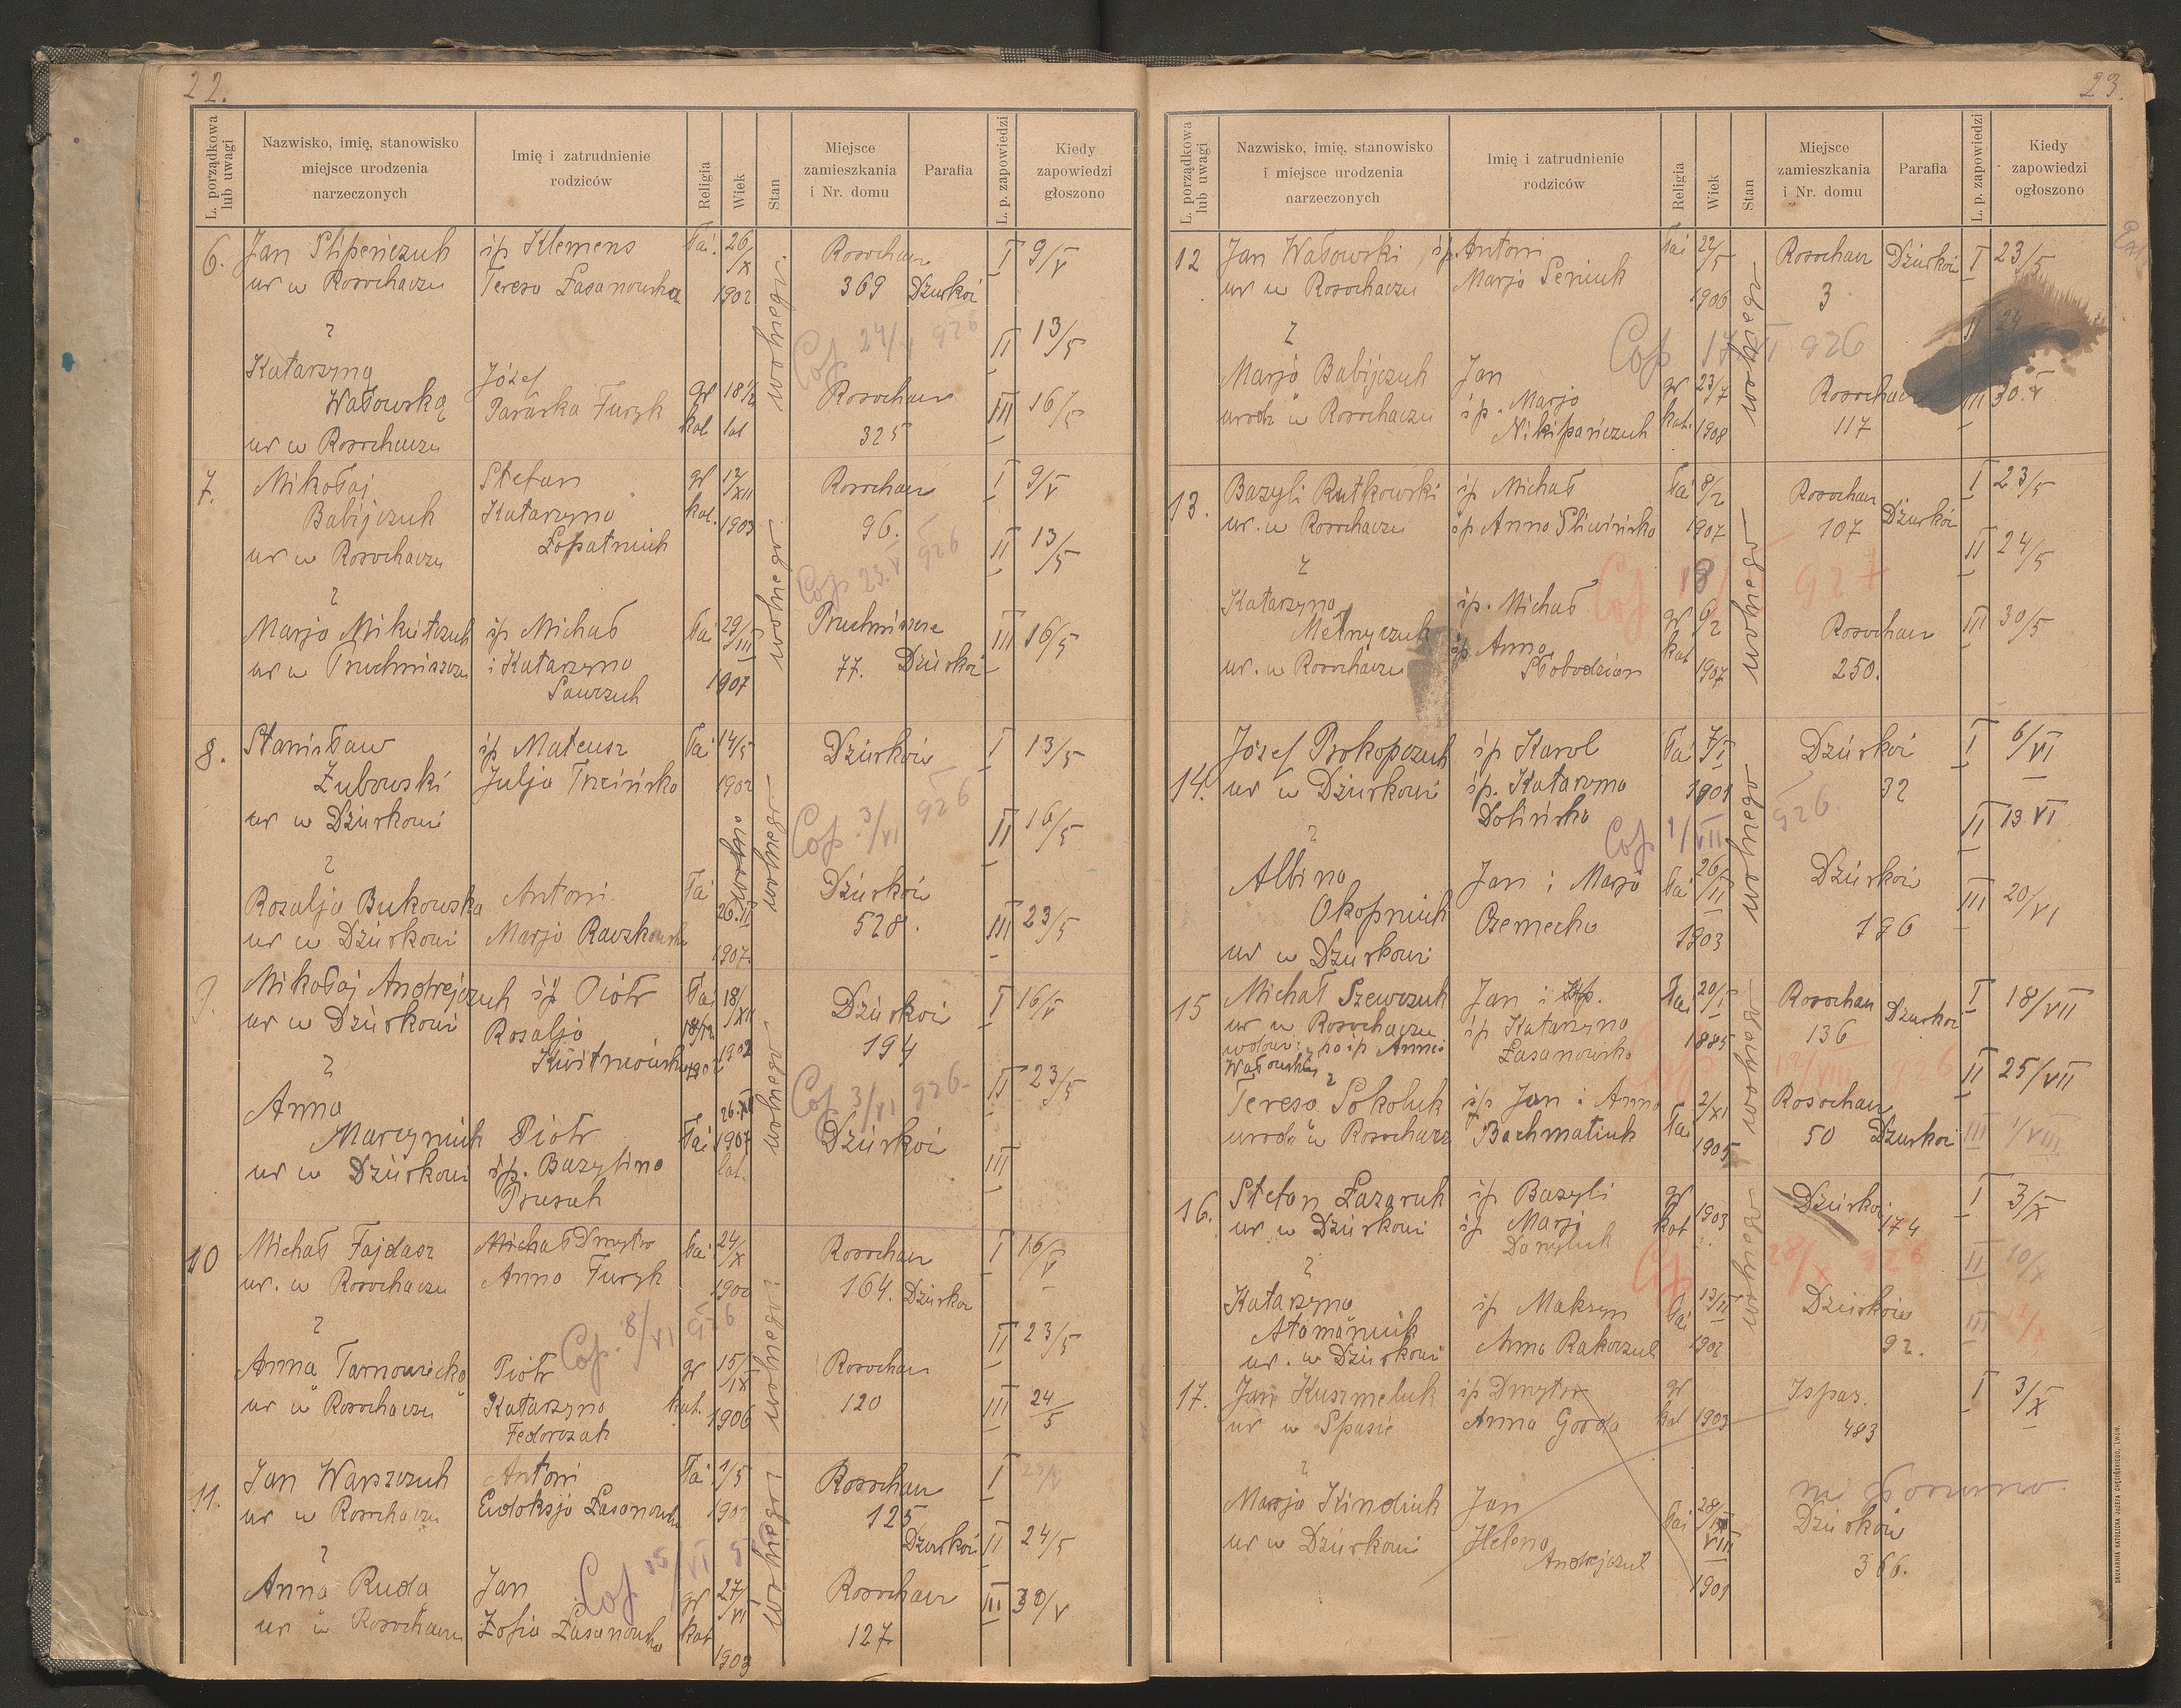 22.
L. porządkowa lub uwagi
Nazwisko, imię, stanowisko
miejsce urodzenia
narzeczonych
Imię i zatrudnienie
rodziców
Religia
Wiek
Stan
Miejsce
zamieszkania
i Nr. domu
Parafia
L. p. zapowiedzi
Kiedy
zapowiedzi
głoszono
6. Jan Slipeńczuk śp Klemens łać. 26/X Rosochacz I 9/V
ur w Rosochaczu Teresa Łasanowska 1902 wolnego 369 Dżurków
z Cop 926 II 13/5
Katarzyna Józef
Wałowska Paraśka Furyk gr 18 1/2 Rosochacz III 16/5
ur w Rosochaczu kat lat 325
7. Mikołaj Stefan gr 12/XII Rosochacz I 9/V
Babijczuk Katarzyna kat. 1903 96.
ur w Rosochaczu Łopatniuk wolnego II 13/5
z Cop 23.V 926
Marja Mikitczuk śp Michał łać 29/III Truchmiszcze III 16/5
ur w Truchmiszczu i Katarzyna 1907 77. Dżurków
Sawczuk
8. Stanisław śp Mateusz łać 14/5 Dżurków I 13/5
Zubowski Julja Trzcińska 1902
ur w Dżurkowi wolnego Cop. 3/VI 926 II 16/5
z
Rozalja Bukowska Antoni łać 26.II Dżurków
ur w Dżurkowi Marja Raczkowska 1907. 528. III 23/5
9. Mikołaj Andrejczuk śp Piotr łać 18/XII Dżurków I 16/V
ur w Dżurkowi Rozalja 18/12 1902 194
z Kwitniowska 1902 wolnego II 23/5
Anna 26.XI Cop 3/VI 926.
Marcyniuk Piotr łać 1907 Dżurków
ur w Dżurkowi śp. Bazylina lat. III
Prusak
10 Michał Fajdasz Michał Dmytro łać 24/X Rosochacz I 16/V
ur. w Rosochaczu Anna Furyk 1900 164. Dżurków
z Cop. 8/VI 926 wolnego II 23/5
Anna Tarnowiecka Piotr gr 15/IX Rosochacz
ur w Rosochaczu Katarzyna kat. 1906 120 III 24/5
Fedorczak
11. Jan Warszczuk Antoni łać 1/5 Rosochacz I
ur w Rosochaczu Eudoksja Łasanowska 125
z Cop 15/VI wolnego Dżurków II 24/5
Anna Ruda Jan gr 27/VI Rosochacz III 30/V
ur w Rosochaczu Zofia Łasanowska kat 1903 127
23.
L. porządkowa lub uwagi
Nazwisko, imię, stanowisko
i miejsce urodzenia
narzeczonych
Imię i zatrudnienie
rodziców
Religia
Wiek
Stan
Miejsce
zamieszkania
i Nr. domu
Parafia
L. p. zapowiedzi
Kiedy
zapowiedzi
ogłoszono
12 Jan Wałowski śp. Antoni łać 22/5 Rosochacz Dżurków I 23/5
ur w Rosochaczu Marja Seniuk 1906 3
z Cop 926 wolnego II 24
Marja Babijczuk Jan gr 23/7 Rosochacz III 30.V
urodz w Rosochaczu śp. Marja kat. 1908 117
Nikipańczuk
13. Bazyli Rutkowski śp Michał łać 8/2 Rosochacz I 23/5
ur. w Rosochaczu śp Anna Sliwińska 1907 107 Dżurków
z Cop 18 927 wolnego II 24/5
Katarzyna śp. Michał gr 6/2
Melnyczuk śp Anna kat Rosochacz III 30/5
ur. w Rosochaczu Słobodzian 1907 250.
14. Józef Prokopczuk śp Karol łać 7/I Dżurków I 6/VI
ur w Dżurkowi śp. Katarzyna 1901 32
Dolińska wolnego II 13 VI
z Cop 1/VII 926.
Albina Jan i Marja łać 26/II Dżurków
Okopniuk Czernecka 1903 196 III 20/VI
ur w Dżurkowi
15 Michał Szewczuk Jan i łać 20/I Rosochacz I 18/VII
ur w Rosochaczu śp Katarzyna 1885 136 Dżurków
wdowiec po śp Annie Łasanowska wolnego II 25/VII
Wałowska z 12/VIII 926
Teresa Sokoluk śp Jan i Anna 2/XI Rosochacz
urodz w Rosochacz Bachmatiuk łać 1905 50 Dżurków III 1/VIII
16. Stefan Łazaruk śp Bazyli gr Dżurków I 3/X
ur. w Dżurkowi śp Marja kat 1903 174
Daryluk wolnego
z Cop 28/X 926 II 10/X
Katarzyna śp Maksym łać 13/II Dżurków III
Atamaniuk Anna Rakoczuk 1902 92.
ur. w Dżurkowi
17. Jan Kuszmeluk śp Dmytro gr Ispas. I 3/X
ur w Spasie Anna Gorda kat 1903 483
z
Marja Kindiuk Jan łać 28/VIII Dżurków
ur w Dżurkowi Helena 366.
Andrejczuk 1901
DRUKARNIA KATOLICKA JÓZEFA CHĘCIŃSKIEGO, LWÓW.